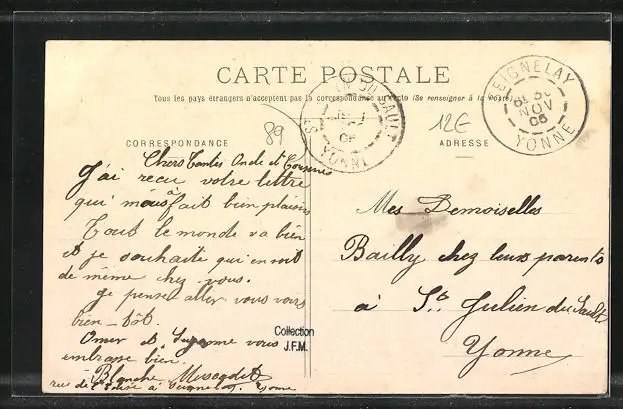 CARTE POSTALE
Tous les pays étrangers n'acceptent pas la correspondance au recto (Se renseigner à la Poste)
CORRESPONDANCE
89
Chers Tantes Oncle et Cousines
J'ai reçu votre lettre
qui nous à fait bien plaisir
Tout le monde va bien
et je souhaite qui en soit
de même chez vous.
Je pense aller vous voir
bien-tôt.
Omer et Suzanne vous
embrasse bien.
Blanche
rue de à Seignelay Yonne
Collection
J.F.M.
ST JULIEN DU SAULT
YONNE
12E
ADRESSE
SEIGNELAY
NOV
06
YONNE
Mes Demoiselles
Bailly chez leurs parents
à St. Julien du Sault
Yonne